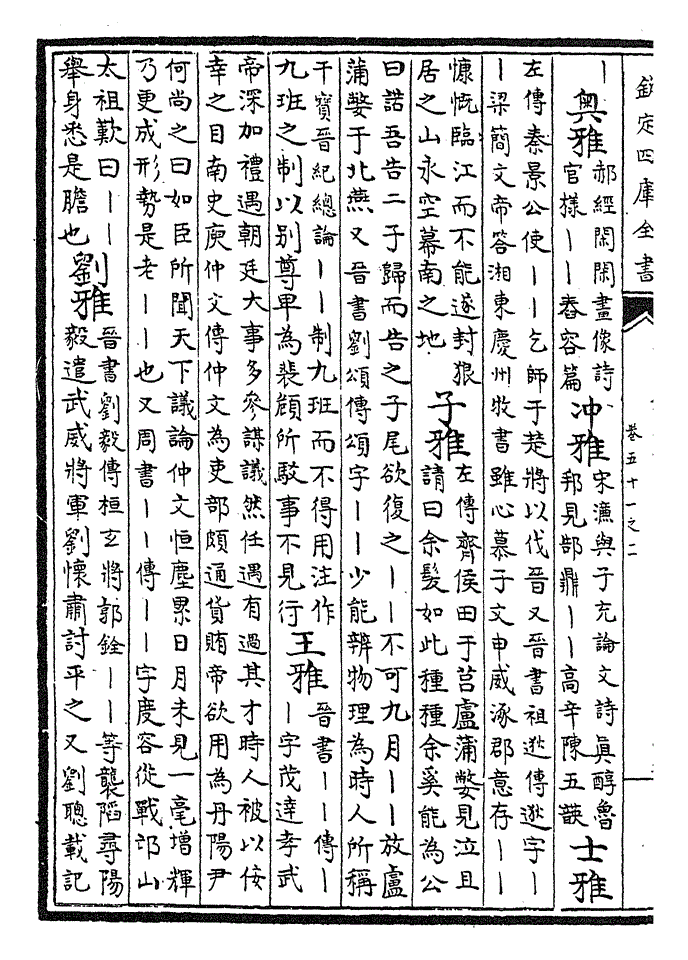 欽定四庫全書
卷五十一之二
｜
奥雅
郝經閑閑畫像詩
官樣｜｜舂容篇
冲雅
宋濂與子充論文詩真醇魯
邦見郜鼎｜｜高辛陳五韺
士雅
左傳秦景公使｜｜乞師于楚將以伐晉又晉書祖逖傳逖字｜
｜梁簡文帝答湘東慶州牧書雖心慕子文申威涿郡意存｜｜
慷慨臨江而不能遂封狼
居之山永空幕南之地
子雅
左傳齊侯田于莒盧蒲嫳見泣且
請曰余髮如此種種余奚能為公
曰諾吾告二子歸而告之子尾欲復之｜｜不可九月｜｜放盧
蒲嫳于北燕又晉書劉頌傳頌字｜｜少能辨物理為時人所稱
干寶晉紀總論｜｜制九班而不得用注作
九班之制以别尊卑為裴頠所駁事不見行
王雅
晉書｜｜傳｜
｜字茂逹孝武
帝深加禮遇朝廷大事多參謀議然任遇有過其才時人被以佞
幸之目南史庾仲文傳仲文為吏部頗通貨賄帝欲用為丹陽尹
何尚之曰如臣所聞天下議論仲文恒塵累日月未見一毫增輝
乃更成形勢是老｜｜也又周書｜｜傳｜｜字度容從戰邙山
太祖歎曰｜｜
舉身悉是膽也
劉雅
晉書劉毅傳桓玄將郭銓｜｜等襲陷尋陽
毅遣武威將軍劉懷肅討平之又劉聰載記